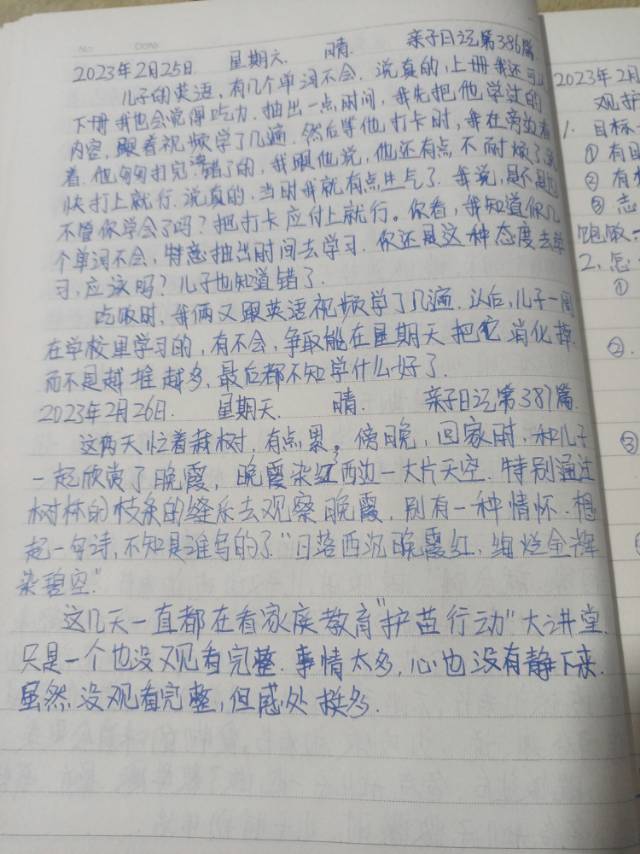 No.
Date
2023年2月25日. 星期天 晴. 亲子日记第386篇
儿子的英语,有几个单词不会.说真的,上册我还可以
下册我也会觉得吃力.抽出一点时间,我先把他学过的
内容,跟着视频学了几遍.然后等他打卡时,我在旁边看
着.他匆匆打完错了的,我跟他说,他还有点不耐烦了
快打上就行.说真的,当时我就有点生气了.我说,是不是
不管你学会了吗?把打卡应付上就行。你看,我知道你几
个单词不会,特意抽出时间去学习.你还是这种态度去学
习,应该吗?儿子也知道错了.
吃饭时,我俩又跟英语视频学了几遍.以后,儿子一周
在学校里学习的,有不会,争取能在星期天把它消化掉
而不是越堆越多,最后都不知学什么好了.
2023年2月26日. 星期天 晴. 亲子日记第387篇.
这两天忙着栽树,有点累。傍晚,回家时,和儿子
一起欣赏了晚霞,晚霞染红西边一大片天空.特别通过
树林的枝条的缝乐去观察晚霞,别有一种情怀.想
起一句诗,不知是谁写的了"日落西沉晚霞红,绚烂金辉
染碧空."
这几天一直都在看家庭教育"护苗行动"大讲堂
只是一个也没又观看完整.事情太多,心也没有静下来.
虽然,没观看完整,但感处挺多.
2023年2月
观护
1.目标
①有目
②有
③志
饱做一
2.怎
①
②
③